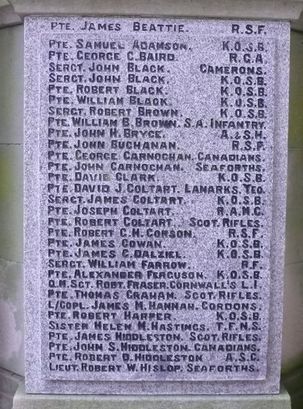 PTE. JAMES BEATTIE. R.S.F.
PTE. SAMUEL ADAMSON. K.O.S.B.
PTE. GEORGE C. BAIRD. R.G.A.
SERGT. JOHN BLACK. CAMERONS.
SERGT. JOHN BLACK. K.O.S.B.
PTE. ROBERT BLACK. K.O.S.B.
PTE. WILLIAM BLACK. K.O.S.B.
SERGT. ROBERT BROWN. K.O.S.B.
PTE. WILLIAM B. BROWN. S.A. INFANTRY.
PTE. JOHN H. BRYCE. A.& S.H.
PTE. JOHN BUCHANAN. R.S.F.
PTE. GEORGE CARNOCHAN. CANADIANS.
PTE. JOHN CARNOCHAN. SEAFORTHS.
PTE. DAVID CLARK. K.O.S.B.
PTE. DAVID J. COLTART. LANARKS. YEO.
SERGT. JAMES COLTART. K.O.S.B.
PTE. JOSEPH COLTART. R.A.M.C.
PTE. ROBERT COLTART. SCOT. RIFLES.
PTE. ROBERT C.M. CORSON. R.S.F.
PTE. JAMES COWAN. K.O.S.B.
PTE. JAMES C. DALZIEL. K.O.S.B.
SERGT. WILLIAM FARROW. R.F.
PTE. ALEXANDER FERGUSON. K.O.S.B.
Q.M. SGT. ROBT. FRASER. CORNWALL'S L.I.
PTE. THOMAS GRAHAM. SCOT. RIFLES.
L/CORPL. JAMES M. HANNAH. GORDONS.
PTE. ROBERT HARPER. K.O.S.B.
SISTER HELEN M. HASTINGS. T.F.N.S.
PTE. JAMES HIDDLESTON. SCOT. RIFLES.
PTE. JOHN S. HIDDLESTON. CANADIANS.
PTE. ROBERT D. HIDDLESTON A.S.C.
LIEUT. ROBERT W. HISLOP. SEAFORTHS.